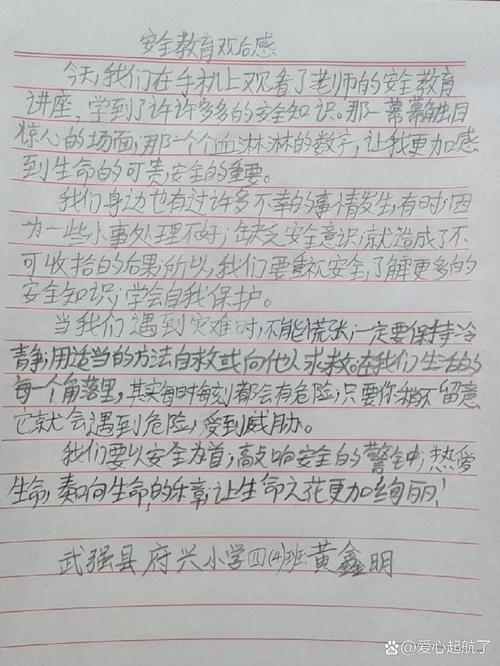 安全教育观后感
今天,我们在手机上观看了老师的安全教育
讲座,学到了许许多多的安全知识。那一幕幕触目
惊心的场面,那一个个血淋淋的数字,让我更加感
到生命的可贵,安全的重要。
我们身边也有过许多不幸的事情发生,有时,因
为一些小事处理不好,缺乏安全意识,就造成了不
可收拾的后果,所以,我们要重视安全,了解更多的
安全知识,学会自我保护。
当我们遇到灾难时,不能慌张,一定要保持冷
静,用适当的方法自救或向他人求救。在我们生活的
每一个角落里,其实每时每刻都会有危险,只要你稍不留意
它就会遇到危险,受到威胁。
我们要以安全为首,敲响安全的警钟,热爱
生命,奏响生命的乐章,让生命之花更加绚丽!
武强县府兴小学四(4)班:黄鑫明
爱心起航了